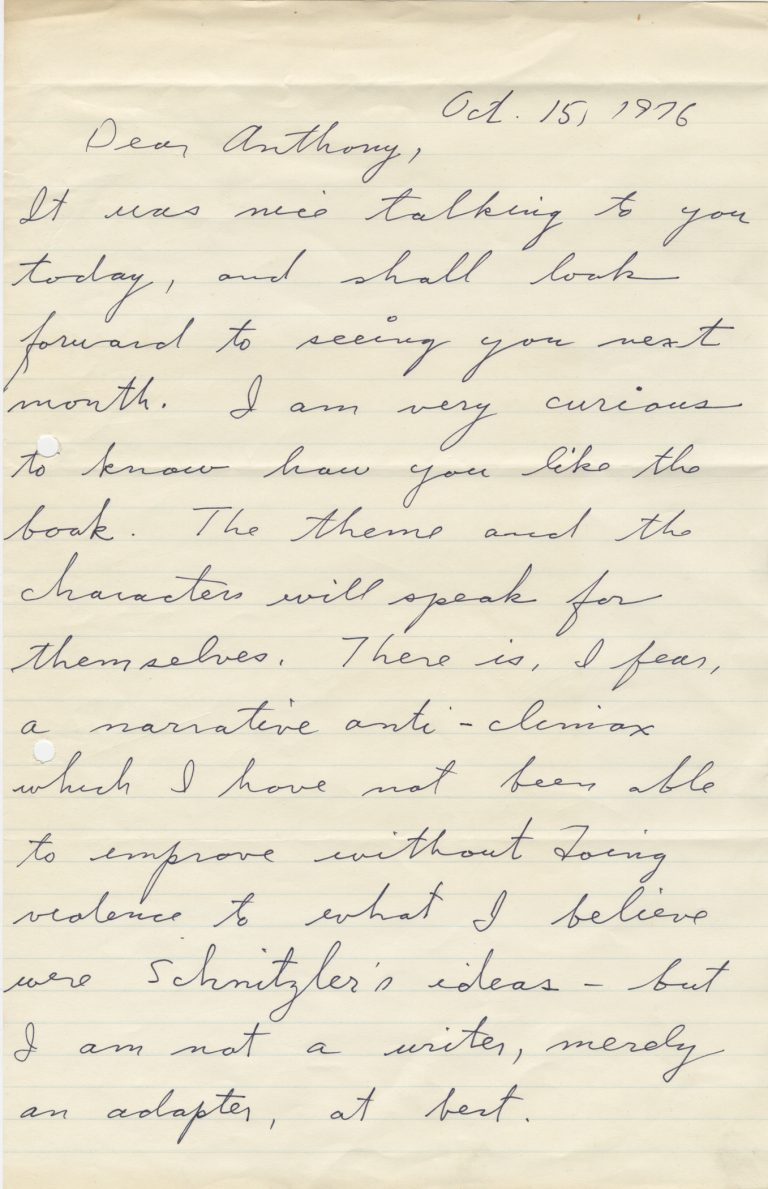 Oct. 15, 1976
Dear Anthony,
It was nice talking to you
today, and shall look
forward to seeing you next
month. I am very curious
to know how you like the
book. The theme and the
characters will speak for
themselves. There is, I fear,
a narrative anti-climax
which I have not been able
to improve without doing
violence to what I believe
were Schnitzler's ideas - but
I am not a writer, merely
an adapter, at best.